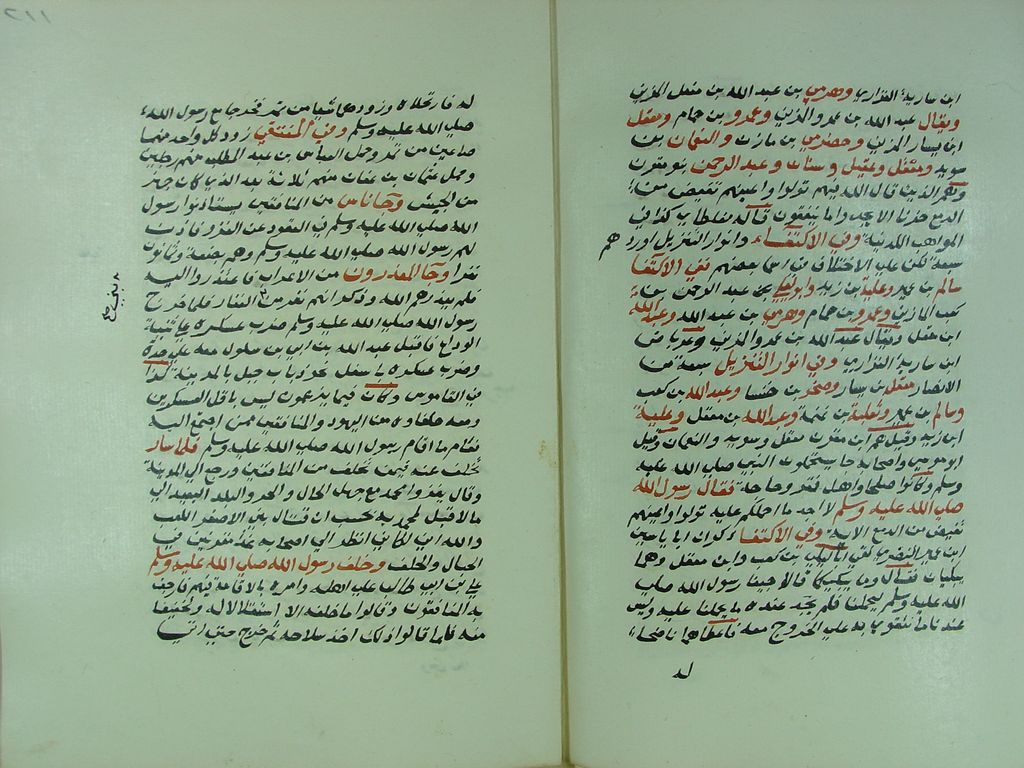 ابن سارية الفزاري وهرمي بن عبد الله بن مغفل المزني
ويقال عبد الله بن عمرو المزني وعمرو بن حمام ومعقل
ابن يسار المزني وحضرمي بن مازن والنعمان بن
سويد ومعقل وعقيل وسنان وعبد الرحمن بنو مقرن
وهم الذين قال الله فيهم تولوا واعينهم تفيض من
الدمع حزنا الا يجدوا ما ينفقون قاله مغلطاي كذا في
المواهب اللدنية وفي الاكتفاء وانوار التنزيل اوردهم
سبعة لكن على الاختلاف في اسما بعضهم ففي الاكتفا
سالم بن عمير وعلبة بن زيد وابو ليلى بن عبد الرحمن بن
كعب المازني وعمرو بن حمام وهرمي بن عبد الله وعبد الله
ابن مغفل ويقال عبد الله بن عمرو المزني وعرباض
ابن سارية الفزاري وفي انوار التنزيل سبعة من
الانصار معقل بن يسار وصخر بن خنسا وعبد الله بن كعب
وسالم بن عمير وثعلبة بن غنمة وعبد الله بن مغفل وعلبة
ابن زيد وقيل هم ابن مقرن معقل وسويد والنعمان وقيل
ابو موسى واصحابه جا يستحملون النبي صلى الله عليه
وسلم وكانوا صلحا واهل فقر وحاجة فقال رسول الله
صلى الله عليه وسلم لا اجد ما احملكم عليه تولوا واعينهم
تفيض من الدمع الاية وفي الاكتفا ذكر ان ابا ياسين
ابن عمير النضري لقي ابا ليلى بن كعب وابن مغفل وهما
يبكيان فقال وما يبكيكما قالا جينا رسول الله صلى
الله عليه وسلم ليحملنا فلم نجد عنده ما يحملنا عليه وليس
عندنا ما نتقوى به على الخروج معه فاعطاهما ناضحا
له
له فارتحلاه وزودهما شيا من تمر فخرجا مع رسول الله
صلى الله عليه وسلم وفي المنتقى زود كل واحد منهما
صاعين من تمر وحمل العباس بن عبد المطلب منهم رجلين
وحمل عثمان بن عفان منهم ثلاثة بعد الذي كان جهز
من الجيش وجا ناس من المنافقين يستاذنوا رسول
الله صلى الله عليه وسلم في القعود عن الغزو فاذن
لهم رسول الله صلى الله عليه وسلم وهم بضعة وثمانون
نفرا وجا المعذرون من الاعراب فاعتذروا اليه
فلم يعذرهم الله وذكر انهم نفر من الغفار فلما خرج
رسول الله صلى الله عليه وسلم ضرب عسكره على ثنية
الوداع فاقبل عبد الله بن ابي بن سلول معه على حدة
وضرب عسكره اسفل نحو ذباب جبل بالمدينة كذا
في القاموس وكان فيما يزعمون ليس باقل العسكرين
ومعه حلفاوه من اليهود والمنافقين ممن اجتمع اليه
فقام ما اقام رسول الله صلى الله عليه وسلم فلما سار
تخلف عنه فيمن تخلف من المنافقين ورجع الى المدينة
وقال يغزو محمد مع جهد الحال والحر والبلد البعيد الى
ما لا قبل له به يحسب ان قتال بني الاصفر اللعب
والله اني لكاني انظر الى اصحابه غدا مقرنين في
الحبال والحلف وخلف رسول الله صلى الله عليه وسلم
علي بن ابي طالب على اهله وامره بالاقامة فيهم فارجف
به المنافقون وقالوا ما خلفه الا استثقالا له وتخفيفا
منه فلما قالوا ذلك اخذ سلاحه ثم خرج حتى اتى